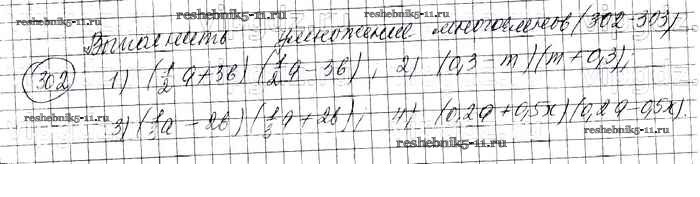 reshebnik5-11.ru reshebnik5-11.ru
Выполнить умножение многочленов (302-303)
302 1) (1/2 a + 3b) (1/2 a - 3b), 2) (0,3 - m)(m + 0,3);
reshebnik5-11.ru reshebnik5-11.ru
3) (1/3 a - 2b) (1/3 a + 2b), 4) (0,2a + 0,5x)(0,2a - 0,5x).
reshebnik5-11.ru reshebnik5-11.ru